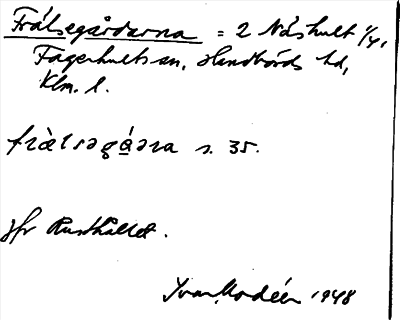 Frälsegårdarna = 2 Näshult 1/4,
Fagerhults sn, Handbörds hd,
Klm. l.
frä̀lsəgå̀ɑra s. 35.
Jfr Rusthållet.
Ivar Modéer 1948